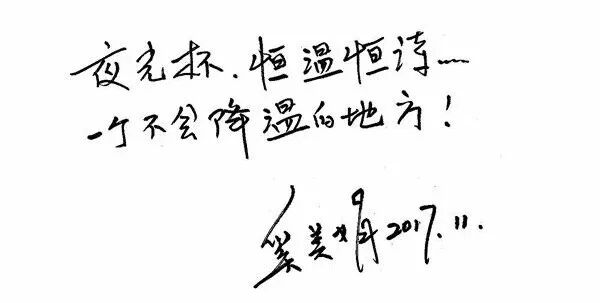 夜光杯.恒温恒诗……
一个不会降温的地方!
奚美娟 2017.11.